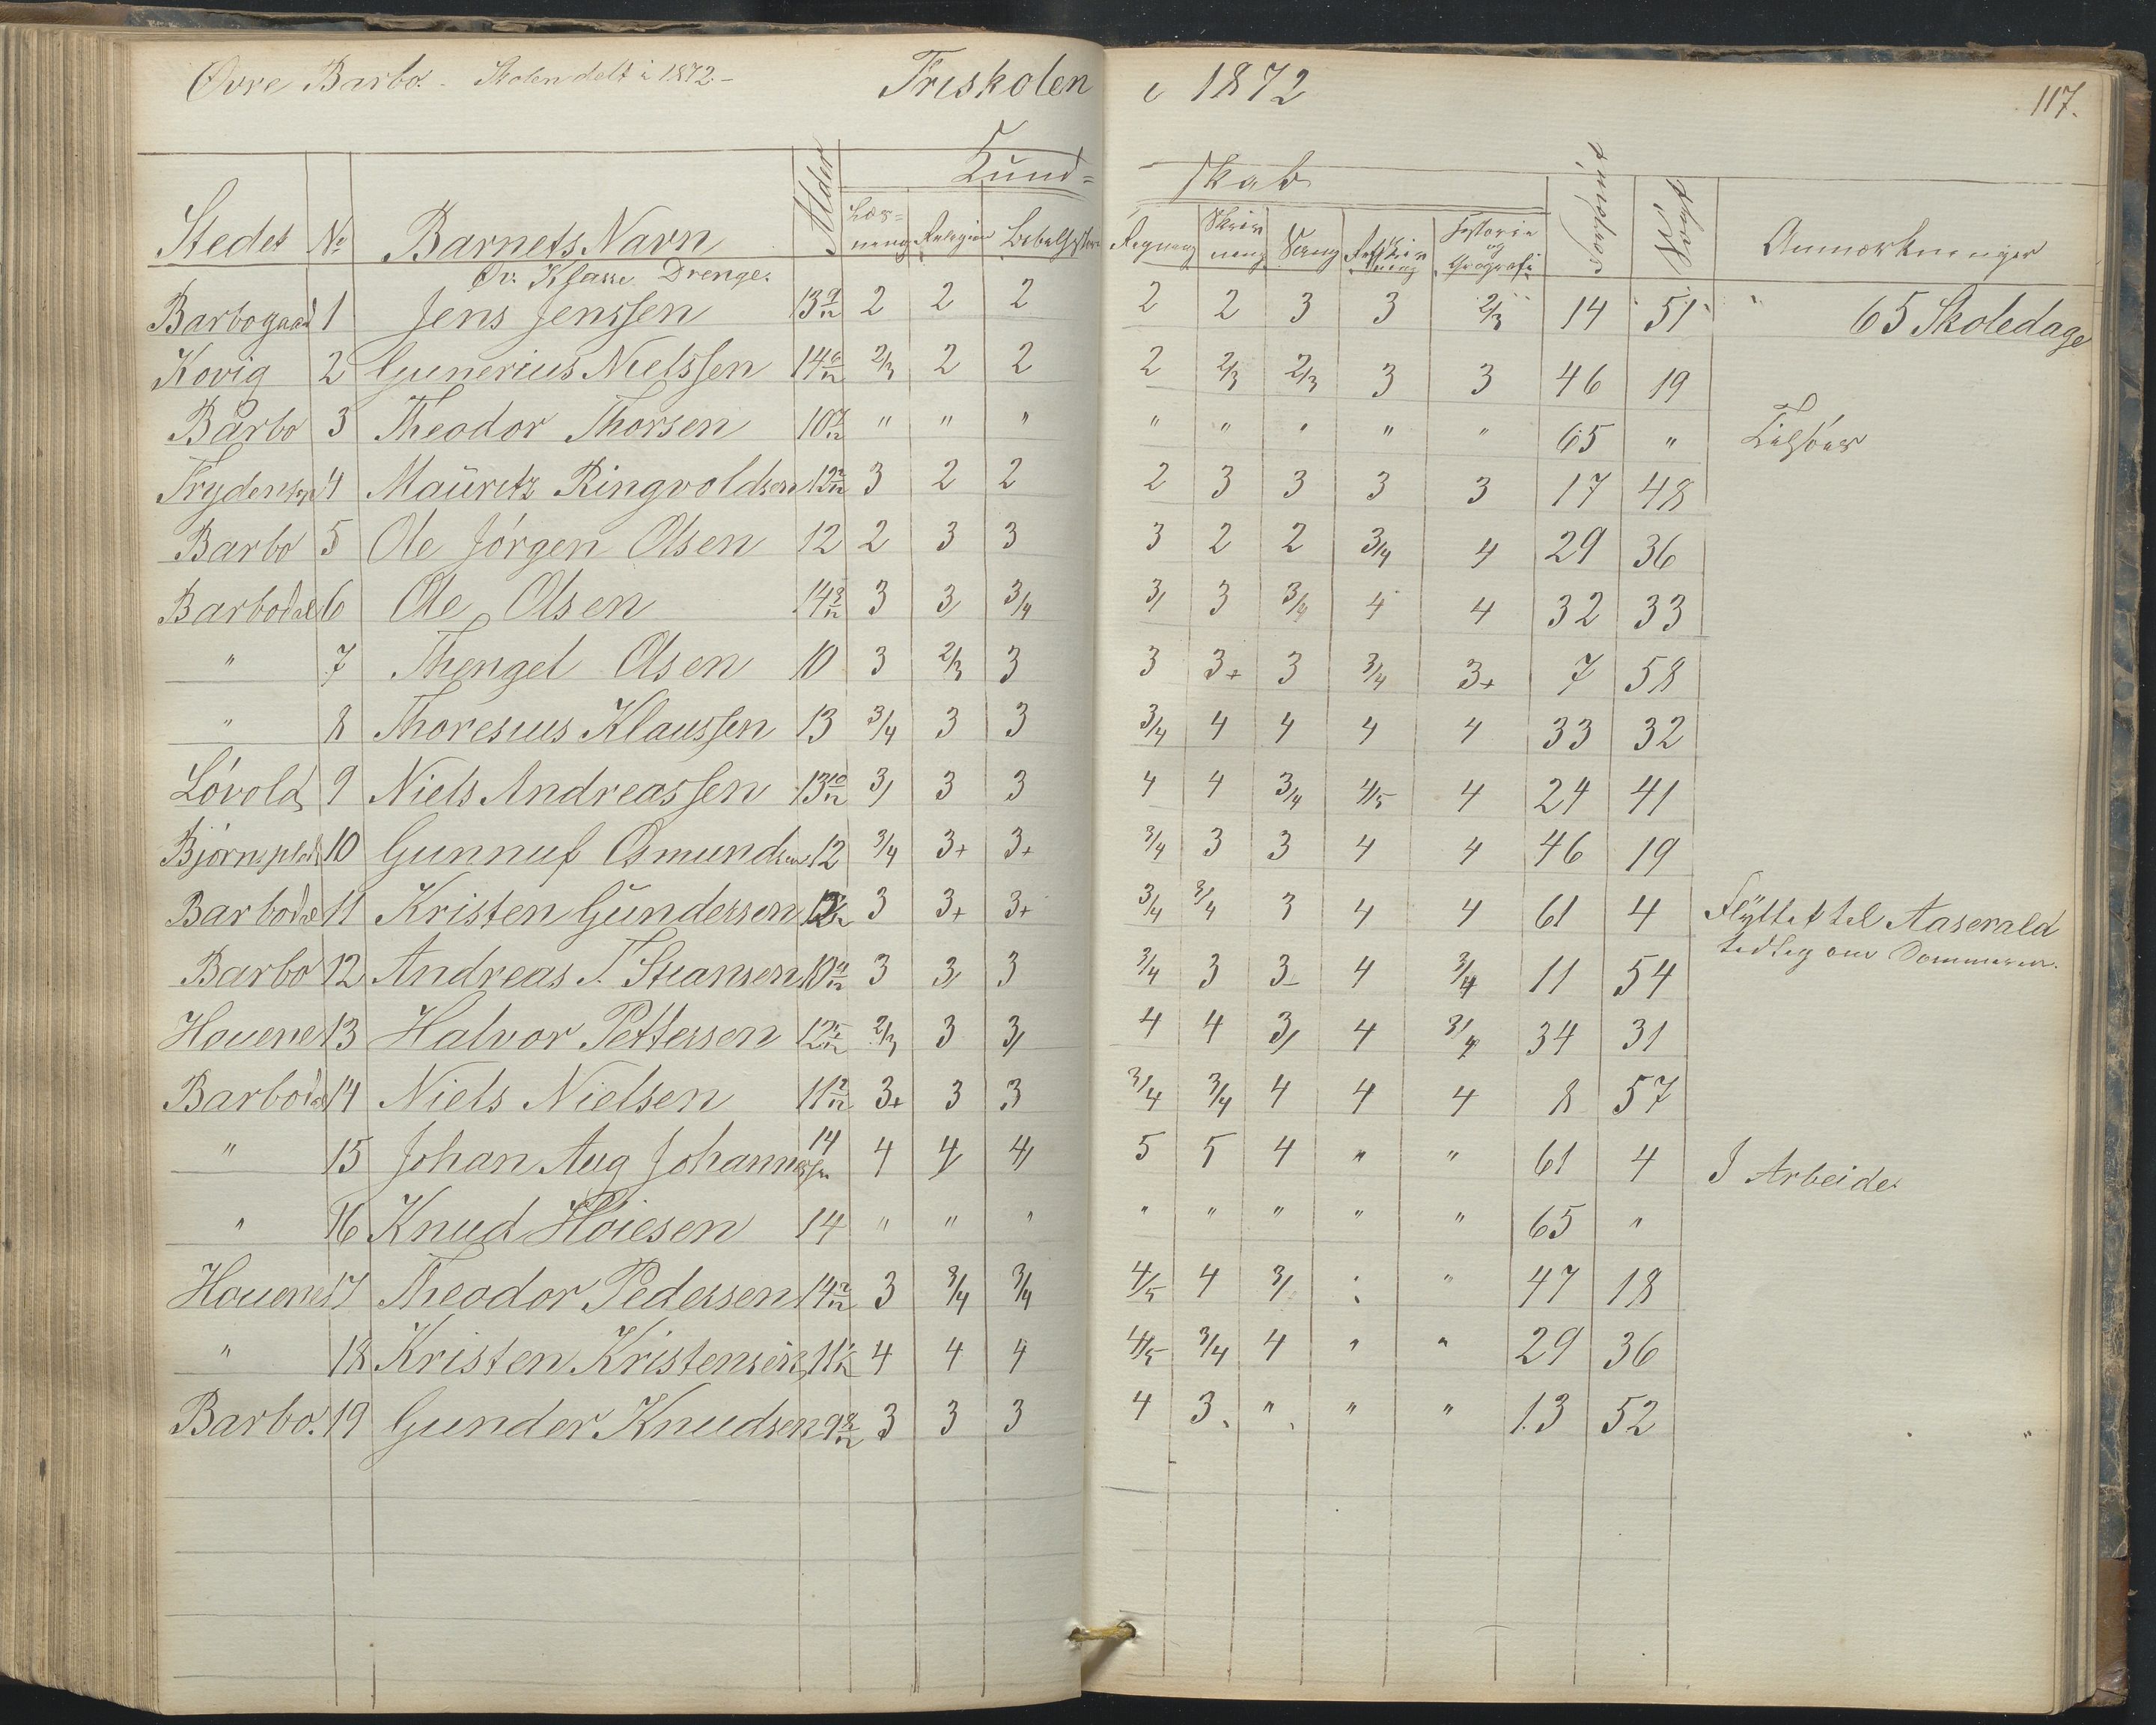 Øvre Barbo. Skolen delt i 1872.- Friskolen i 1872 117.
Kund= skab
Stedet No Barnets Navn Alder Læs=ning Religion Bibelhistorie Regning Skriv ning Sang Retskriv ning Historie og Geografi Forsømt Søgt Anmærkninger
Øv. Klasse Drenge.
Barbogaad 1 Jens Jenssen 13 9/12 2 2 2 2 2 3 3 2/3 14 51 " 65 Skoledage
Kovig 2 Gunerius Nielssen 14 6/12 2/3 2 2 2 2/3 2/3 3 3 46 19
Barbo 3 Theodor Thorsen 10 7/12 " " " " " " " " 65 " Tilsøes
4 Mauritz Ringvoldsen 12 2/12 3 2 2 2 3 3 3 3 17 48
Barbo 5 Ole Jórgen Olsen 12 2 3 3 3 2 2 3/4 4 29 36
Barbodal 6 Ole Olsen 14 3/12 3 3 3/4 3/ 3 3/4 4 4 32 33
" 7 Thengel Olsen 10 3 2/3 3 3 3+ 3 3/4 3+ 7 58
" 8 Thoresius Klaussen 13 3/4 3 3 3/4 4 4 4 4 33 32
Lóvold 9 Niels Andreassen 13 10/12 3/ 3 3 4 4 3/4 4/5 4 24 41
Bjórnsplads 10 Gunnuf Osmundsen 12 3/4 3+ 3+ 3/4 3 3 4 4 46 19
Barbodal 11 Kristen Gundersen 3 3+ 3+ 3/4 3/4 3 4 4 61 4 Flyttet til Aaserald
tidlig om Sommeren.
Barbo 12 Andreas T. 3 3/ 3 3/4 3 3- 4 3/4 11 54
Houene 13 Halvor Pettersen 12 5/12 2/3 3 3/ 4 4 3/ 4 3/4 34 31
Barbodal 14 Niels Nielsen 11 2/12 3+ 3 3 3/4 3/4 4 4 4 8 57
" 15 Johan Aug Johannessen 14 4 4/ 4/ 5 5 4 " " 61 4 I Arbeide.
" 16 Knud Hóiesen 14 " " " " " " " " 65 "
Houene 17 Theodor Pedersen 14 2/12 3 3/4 3/4 4/5 4 3/ : " 47 18
" 18 Kristen Kristensen 4 4 4 4/5 3/4 4 " " 29 36
Barbo. 19 Gunder Knudsen 9 8/12 3 3 3 4 3 " " " 13 52